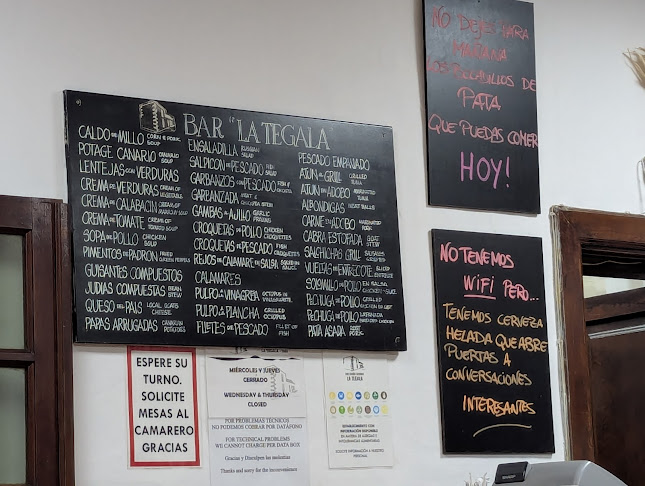 BAR "LA TEGALA"
CALDO DE MILLO CORN & PORK SOUP
POTAGE CANARIO CANARIO SOUP
LENTEJAS CON VERDURAS
CREMA DE VERDURAS CREAM OF VEGETABLE
CREMA DE CALABACIN
CREMA DE TOMATE CREAM OF TOMATO SOUP
SOPA DE POLLO CHICKEN SOUP
PIMIENTOS DE PADRON FRIED GREEN PEPPERS
GUISANTES COMPUESTOS
JUDIAS COMPUESTAS BEAN STEW
QUESO DEL PAIS LOCAL GOATS CHEESE
PAPAS ARRUGADAS CANARIAN POTATOES
ENSALADILLA RUSSIAN SALAD
SALPICON DE PESCADO FISH SALAD
GARBANZOS CON PESCADO
GARBANZADA MEAT & CHICKPEA STEW
GAMBAS AL AJILLO GARLIC PRAWNS
CROQUETAS DE POLLO CHICKEN CROQUETTES
CROQUETAS DE PESCADO FISH CROQUETTES
REJOS DE CALAMAR EN SALSA SQUID IN SAUCE
CALAMARES
PULPO A LA VINAGRETA OCTOPUS IN VINAIGRETTE
PULPO A LA PLANCHA GRILLED OCTOPUS
FILETES DE PESCADO FILLET OF FISH
PESCADO EMPANADO
ATUN AL GRILL GRILLED TUNA
ATUN EN ADOBO MARINATED TUNA
ALBONDIGAS MEAT BALLS
CARNE EN ADOBO MARINATED PORK
CABRA ESTOFADA GOAT STEW
SALCHICHAS GRILL SAUSAGES GRILLED
VUELTAS DE ENTRECOTE
SOLOMILLO DE POLLO EN SALSA
PECHUGA DE POLLO GRILLED CHICKEN
PECHUGA DE POLLO EMPANADA
PATA ASADA ROAST PORK
NO DEJES PARA
MAÑANA
LOS BOCADILLOS DE
PATA
QUE PUEDAS COMER
HOY!
NO TENEMOS
WIFI PERO...
TENEMOS CERVEZA
HELADA QUE ABRE
PUERTAS A
CONVERSACIONES
INTERESANTES
ESPERE SU
TURNO.
SOLICITE
MESAS AL
CAMARERO
GRACIAS
MIÉRCOLES Y JUEVES
CERRADO
WEDNESDAY & THURSDAY
CLOSED
POR PROBLEMAS TÉCNICOS
NO PODEMOS COBRAR POR DATÁFONO
FOR TECHNICAL PROBLEMS
WE CANNOT CHARGE PER DATA BOX
Gracias y Disculpen las molestias
Thanks and sorry for the inconvenience
LA TEGALA
ESTABLECIMIENTO CON
INFORMACIÓN DISPONIBLE
EN MATERIA DE ALERGIAS E
INTOLERANCIAS ALIMENTARIAS
SOLICITE INFORMACIÓN A NUESTRO
PERSONAL